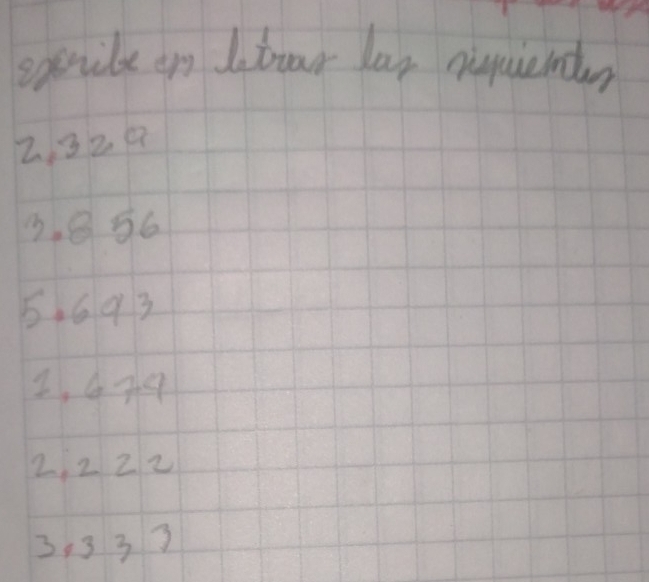 escribe en letras las siguientes
2.329
3.856
5.693
1.679
2.222
3.333